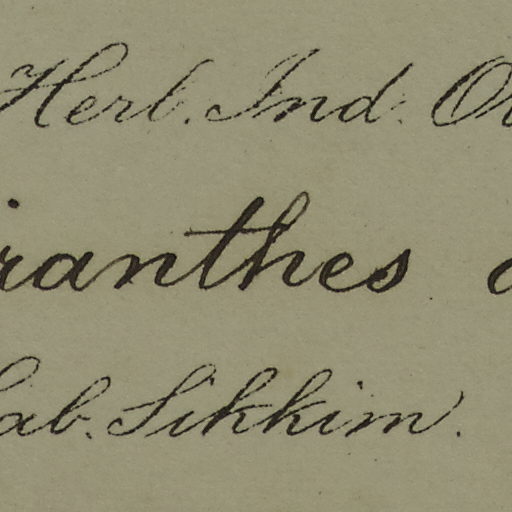 Herb. Ind. Or
iranthes a
Hab. Sikkim.